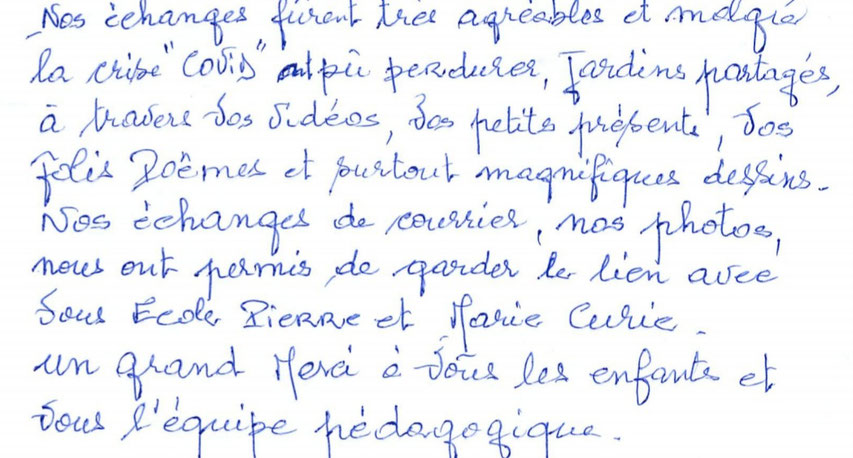 Nos échanges fûrent très agréables et malgré
la crise "COViD" ont pû perdurer, Jardins partagés,
à travers Vos Vidéos, Vos petits présents, Vos
Jolis Poêmes et surtout magnifiques dessins.
Nos échanges de courrier, nos photos,
nous ont permis de garder le lien avec
Vous Ecole PIERRE et Marie Curie.
un grand Merci à Vous les enfants et
Vous l'équipe pédagogique.